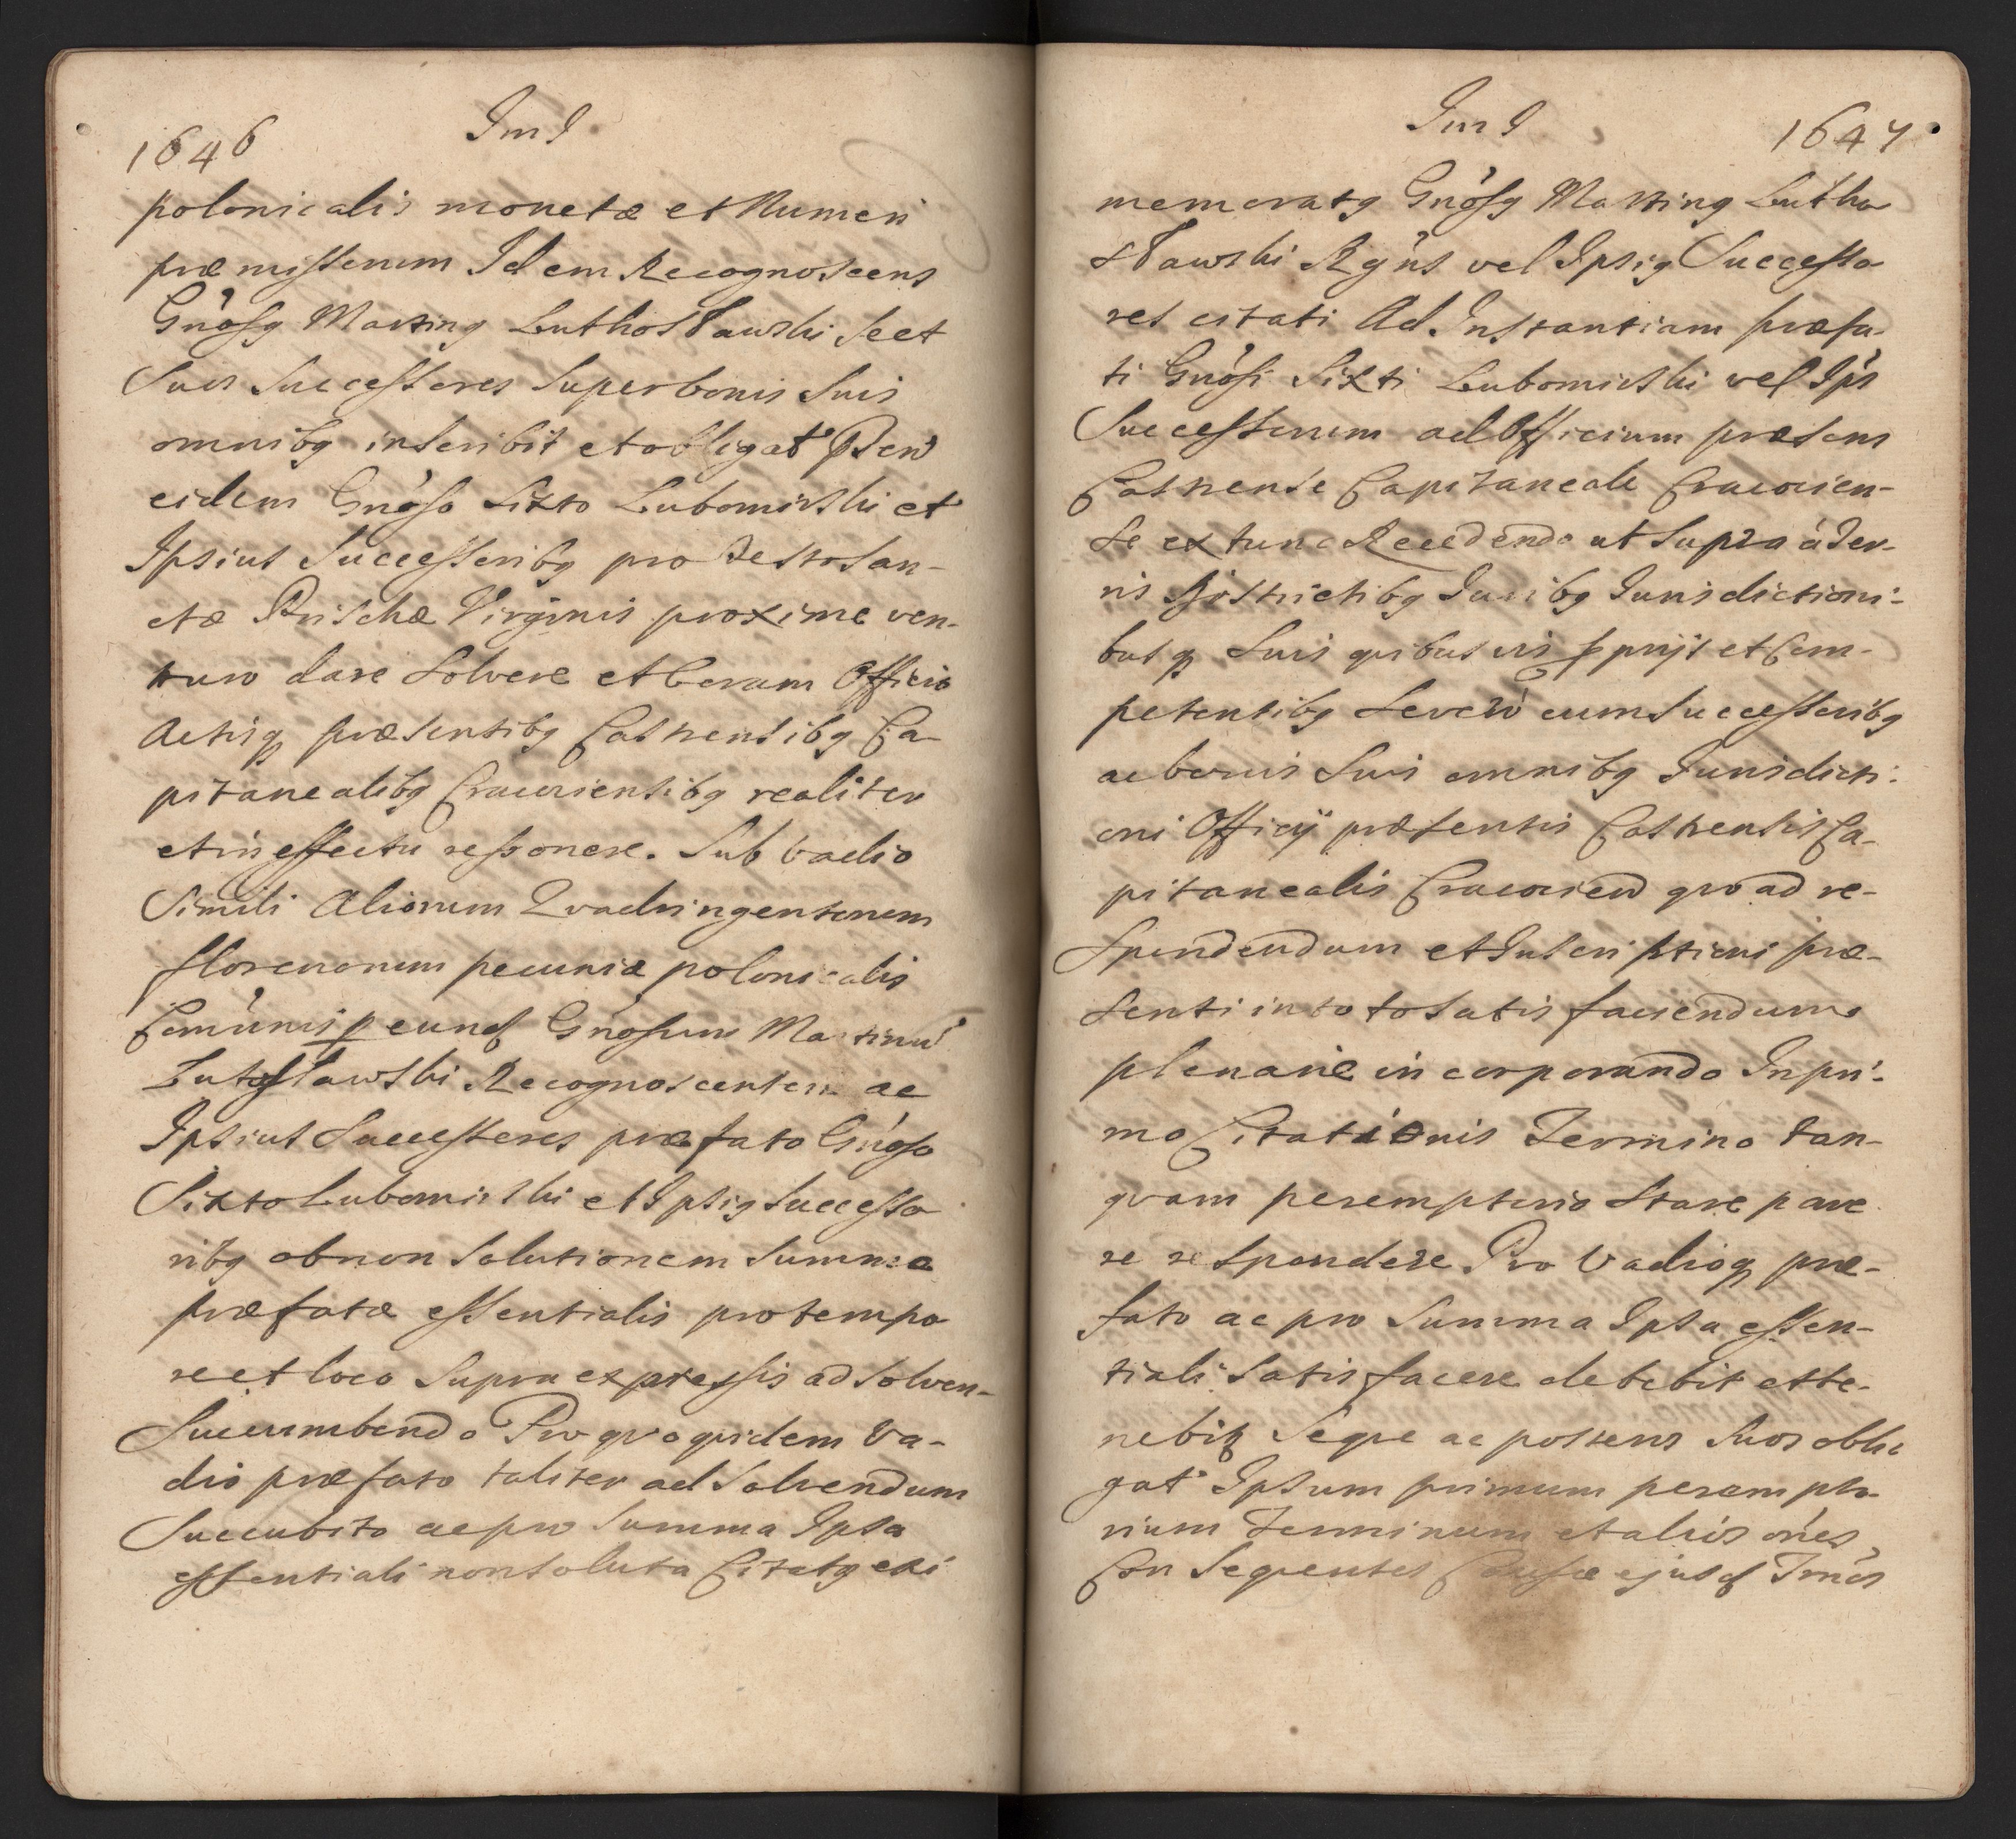 1646 Jm J
polonicalis monetæ et Numeri
præmissorum Idem Recognoscens
Gnosq Martinq Luthoslawski se et
Suos Successores Super bonis Suis
omnibq inscribit et obligat
eidem Gnoso Sixto Lubomirski et
Ipsius Successoribq pro Festo San-
ctæ Prischæ Virginis proxime ven-
turo dare Solvere et Coram Officio
Actisq præsentibq Castrensibq Ca-
pitanealibq Cracoviensibq realiter
et in effectu reponere. Sub Vadio
Simili Aliorum Qvadringentorum
florenorum pecuniæ polonicalis
Comunis p eund Gnosum Martinu
Lutoslawski Recognoscentem ac
Ipsius Successores præfato Gnoso
Sixto Lubomirski et Ipsiq Successo
ribq ob non Solutionem Summæ
præfatæ essentialis pro tempo
re et loco Supra expressis ad Solven-
Sucumbendo Pro qvo qvidem Va-
dio præfato taliter ad Solvendum
Succubito ac pro Summa Ipsa
essentiali non Soluta Citatq exi
Jm J 1647
memoratq Gnosq Martinq Lutho
slawski Rgns vel Ipsiq Successo
res citati Ad Instantiam præfa-
ti Gnosi Sixti Lubomirski vel Ips
Successorum ad Officium præsens
Castrense Capitaneale Cracovien-
se ex tunc Recedendo ut Supra à Ter-
ris Districtibq Juribq Jurisdictioni-
busq Suis qvibusvis pprijs et Com-
petentibq Seved cum Successoribq
ac bonis Suis omnibq Jurisdicti-
oni Officij præsentis Castrensis Ca-
pitanealis Cracovien qvo ad re-
Spondendum et Inscriptioni præ-
senti in toto Satis faciendum
plenarie incorporando In pri-
mo Citationis Termino tan-
qvam peremptorio Stare pare
re respondere Pro Vadioq præ-
fato ac pro Summa Ipsa essen-
tiali Satisfacere debebit et te-
nebit Seqve ac posteros Suos obli
gat Ipsum primum perempto
rium Terminum et alios ones
Con Seqventes Causæ ejusd Tmos